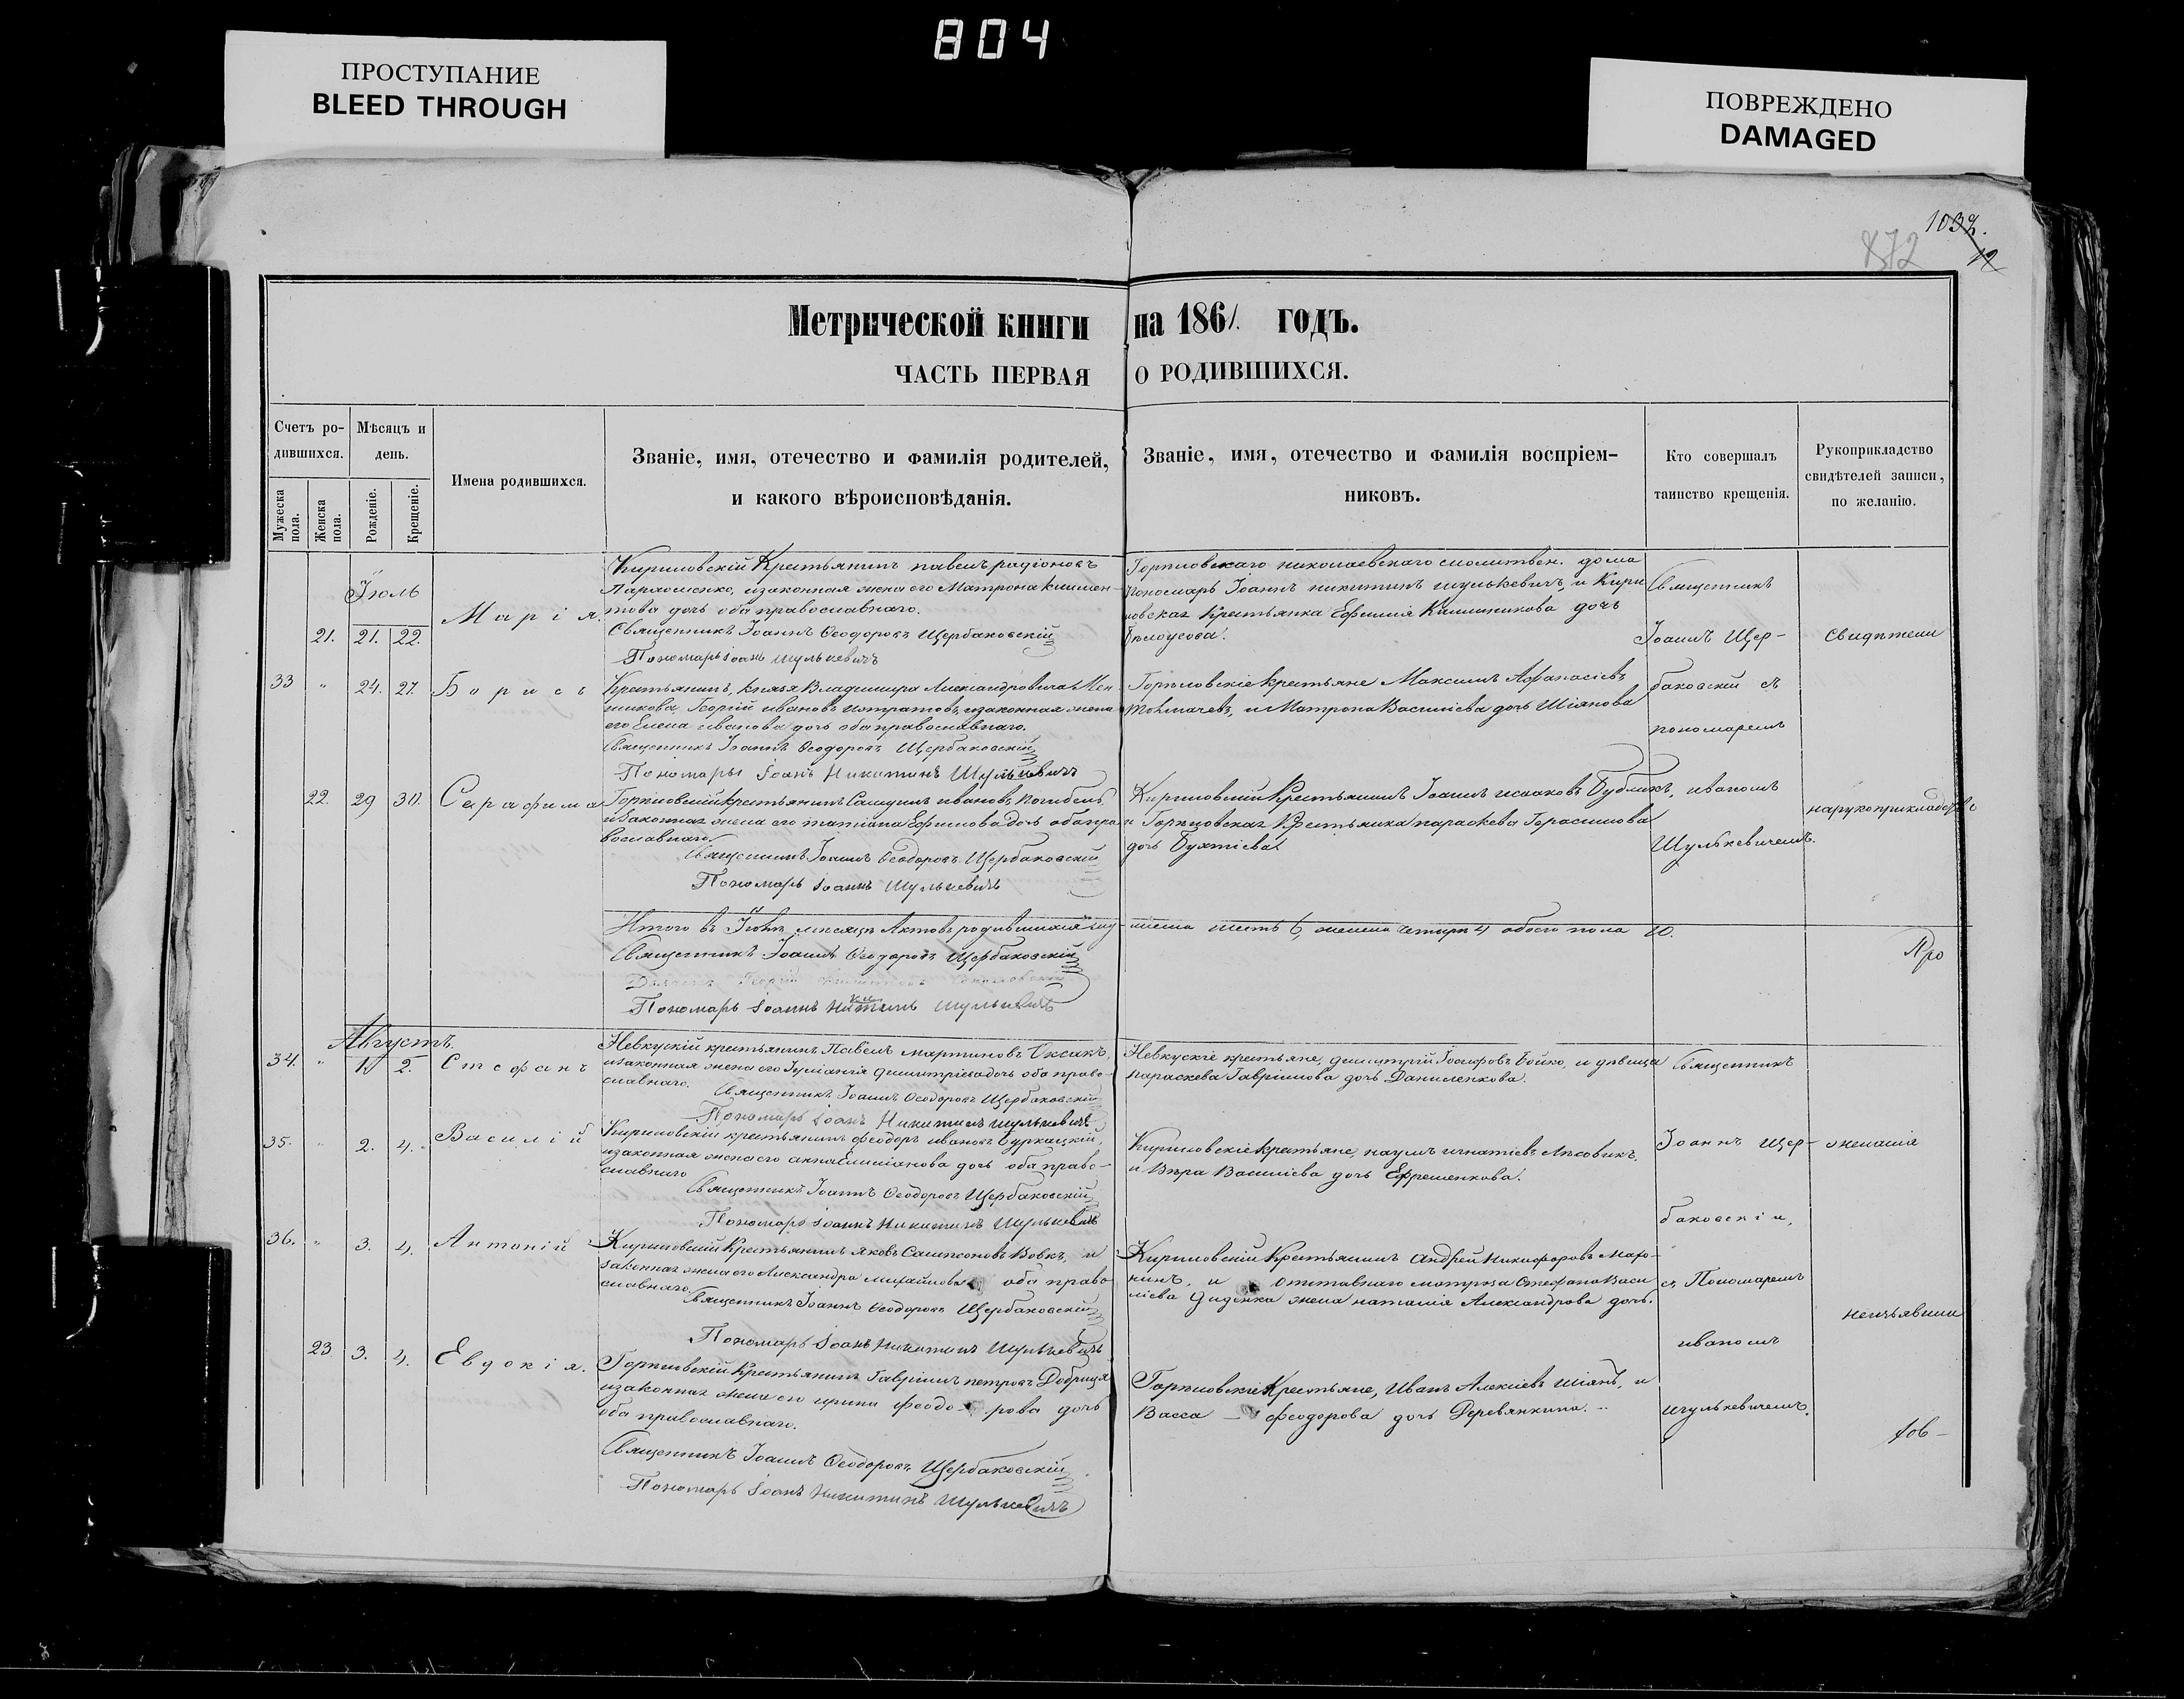 804
ПРОСТУПАНИЕ
BLEED THROUGH
ПОВРЕЖДЕНО
DAMAGED
872
12
Метрической книги на 1861. годъ.
ЧАСТЬ ПЕРВАЯ О РОДИВШИХСЯ.
Счетъ ро-
дившихся.
Мужеска пола.
Женска пола.
Мѣсяцъ и
день.
Рожденіе.
Крещеніе.
Имена родившихся.
Званіе, имя, отечество и фамилія родителей,
и какого вѣроисповѣданія.
Званіе, имя, отечество и фамилія воспріем-
никовъ.
Кто совершалъ
таинство крещенія.
Рукоприкладство
свидѣтелей записи,
по желанію.
Іюль
21. 21. 22. Марія.
Кириловскій Крестьянинъ павелъ радіоновъ
Пархоменко, изаконная жена его Матрона климен-
това дочь оба православнаго.
Священникъ Іоаннъ Ѳеодоровъ Щербаковскій
Пономарь Іоанъ шулькевичъ
николаевскаго молитвен. дома
пономарь Іоаннъ никитинъ шулькевичъ, и Кири
ловская Крестьянка Ефимія Калиникова дочь
Бѣлоусова.
33 " 24. 27. Борисъ
Крестьянинъ, князя Владимира Александровича Мен
шикова Георгій ивановъ изаконная жена
его Елена иванова дочь оба православнаго.
Священникъ Іоаннъ Ѳеодоровъ Щербаковскій
Пономарь Іоанъ Никитинъ Шулькевичъ
крестьяне Максимъ Афанасіевъ
Толмачевъ, и Матрона Василіева дочь Шіянова
22. 29 30. Серафима
крестьянинъ Самуилъ ивановъ Погибель,
изаконная жена его татіана Ефимова дочь оба пра
вославнаго.
Священникъ Іоаннъ Ѳеодоровъ Щербаковскій
Пономарь Іоаннъ Шулькевичъ
Кириловскій Крестьянинъ Іоаннъ исааковъ Бубликъ,
и Крестьянка параскева Герасимова
дочь Бухтіева.
Священникъ
Іоаннъ Щер-
баковскій съ
пономаремъ
иваномъ
Шулькевичемъ.
Свидѣтели
нарукоприкладство
Итого въ мѣсяцѣ Актовъ родившихся муж-
шесть 6, женска четыре 4 обоего пола 10.
Священникъ Іоаннъ Ѳеодоровъ Щербаковскій
Пономарь Іоаннъ Никитинъ шулькевичъ
Про
Августъ.
34. " 1. 2. Стефанъ
крестьянинъ Павелъ мартиновъ Оксакъ,
изаконная жена его Іуліанія димитріева дочь оба право-
славнаго.
Священникъ Іоаннъ Ѳеодоровъ Щербаковскій
Пономарь Іоанъ Никитинъ шулькевичъ
крестьяне, димитрій Бойко, и дѣвица
параскева Гавріилова дочь Даниленкова.
35. " 2. 4. Василій
Кириловскій крестьянинъ феодоръ ивановъ
изаконная жена его анна Емиліанова дочь оба право-
славнаго
Священникъ Іоаннъ Ѳеодоровъ Щербаковскій
Пономарь Іоаннъ Никитинъ Шулькевичъ
Кириловскіе крестьяне, наумъ игнатіевъ Лѣсовикъ,
и Вѣра Василіева дочь Ефременкова.
36. " 3. 4. Антоній
Кириловскій Крестьянинъ яковъ Сампсоновъ Вовкъ, и
законная жена его Александра михайлова оба право
славнаго.
Священникъ Іоаннъ Ѳеодоровъ Щербаковскій
Пономарь Іоанъ Никитинъ Шулькевичъ
Кириловскій Крестьянинъ Андрей Никифоровъ
и отставнаго матроза Стефана Васи
ліева диденка жена наталія Александрова дочь.
23. 3. 4. Евдокія.
Крестьянинъ Гавріилъ петровъ Добриця
изаконная жена его ирина феодорова дочь
оба православнаго.
Священникъ Іоаннъ Ѳеодоровъ Щербаковскій
Пономарь Іоанъ Никитинъ Шулькевичъ
Крестьяне, Иванъ Алексіевъ шіянъ, и
Васса феодорова дочь Деревянкина.
Священникъ
Іоаннъ Щер-
баковскій,
съ Пономаремъ
иваномъ
шулькевичемъ.
желанія
неизъявили